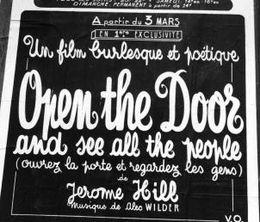 DIMANCHE, PERMANENT à partir de 14ʰ
A partir du 3 MARS
EN 1ʳᵉ EXCLUSIVITÉ
Un film burlesque et poétique
Open the Door
and see all the people
(ouvrez la porte et regardez les gens)
de
Jerome Hill
musique de Alec WILDER
V.O.